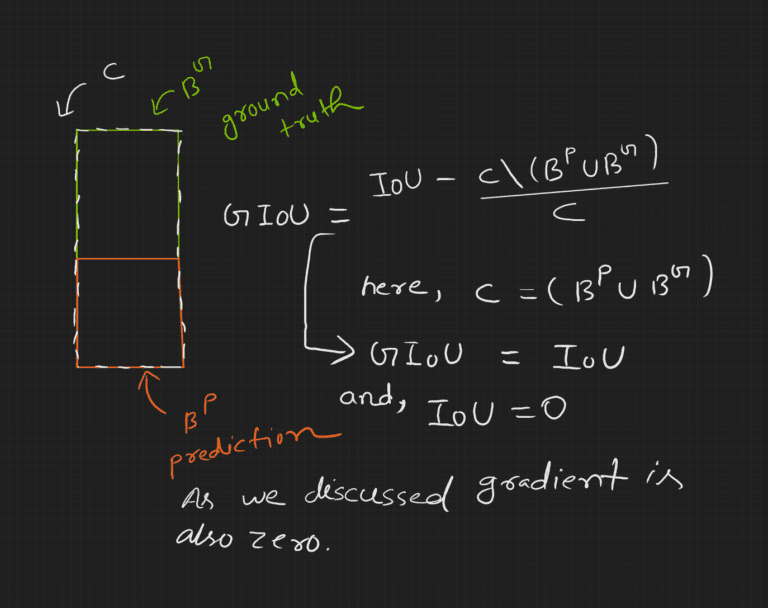 C
B^G
ground
truth
GIoU = IoU - C\(B^P ∪ B^G) / C
here, C = (B^P ∪ B^G)
GIoU = IoU
and, IoU = 0
B^P
prediction
As we discussed gradient is
also zero.